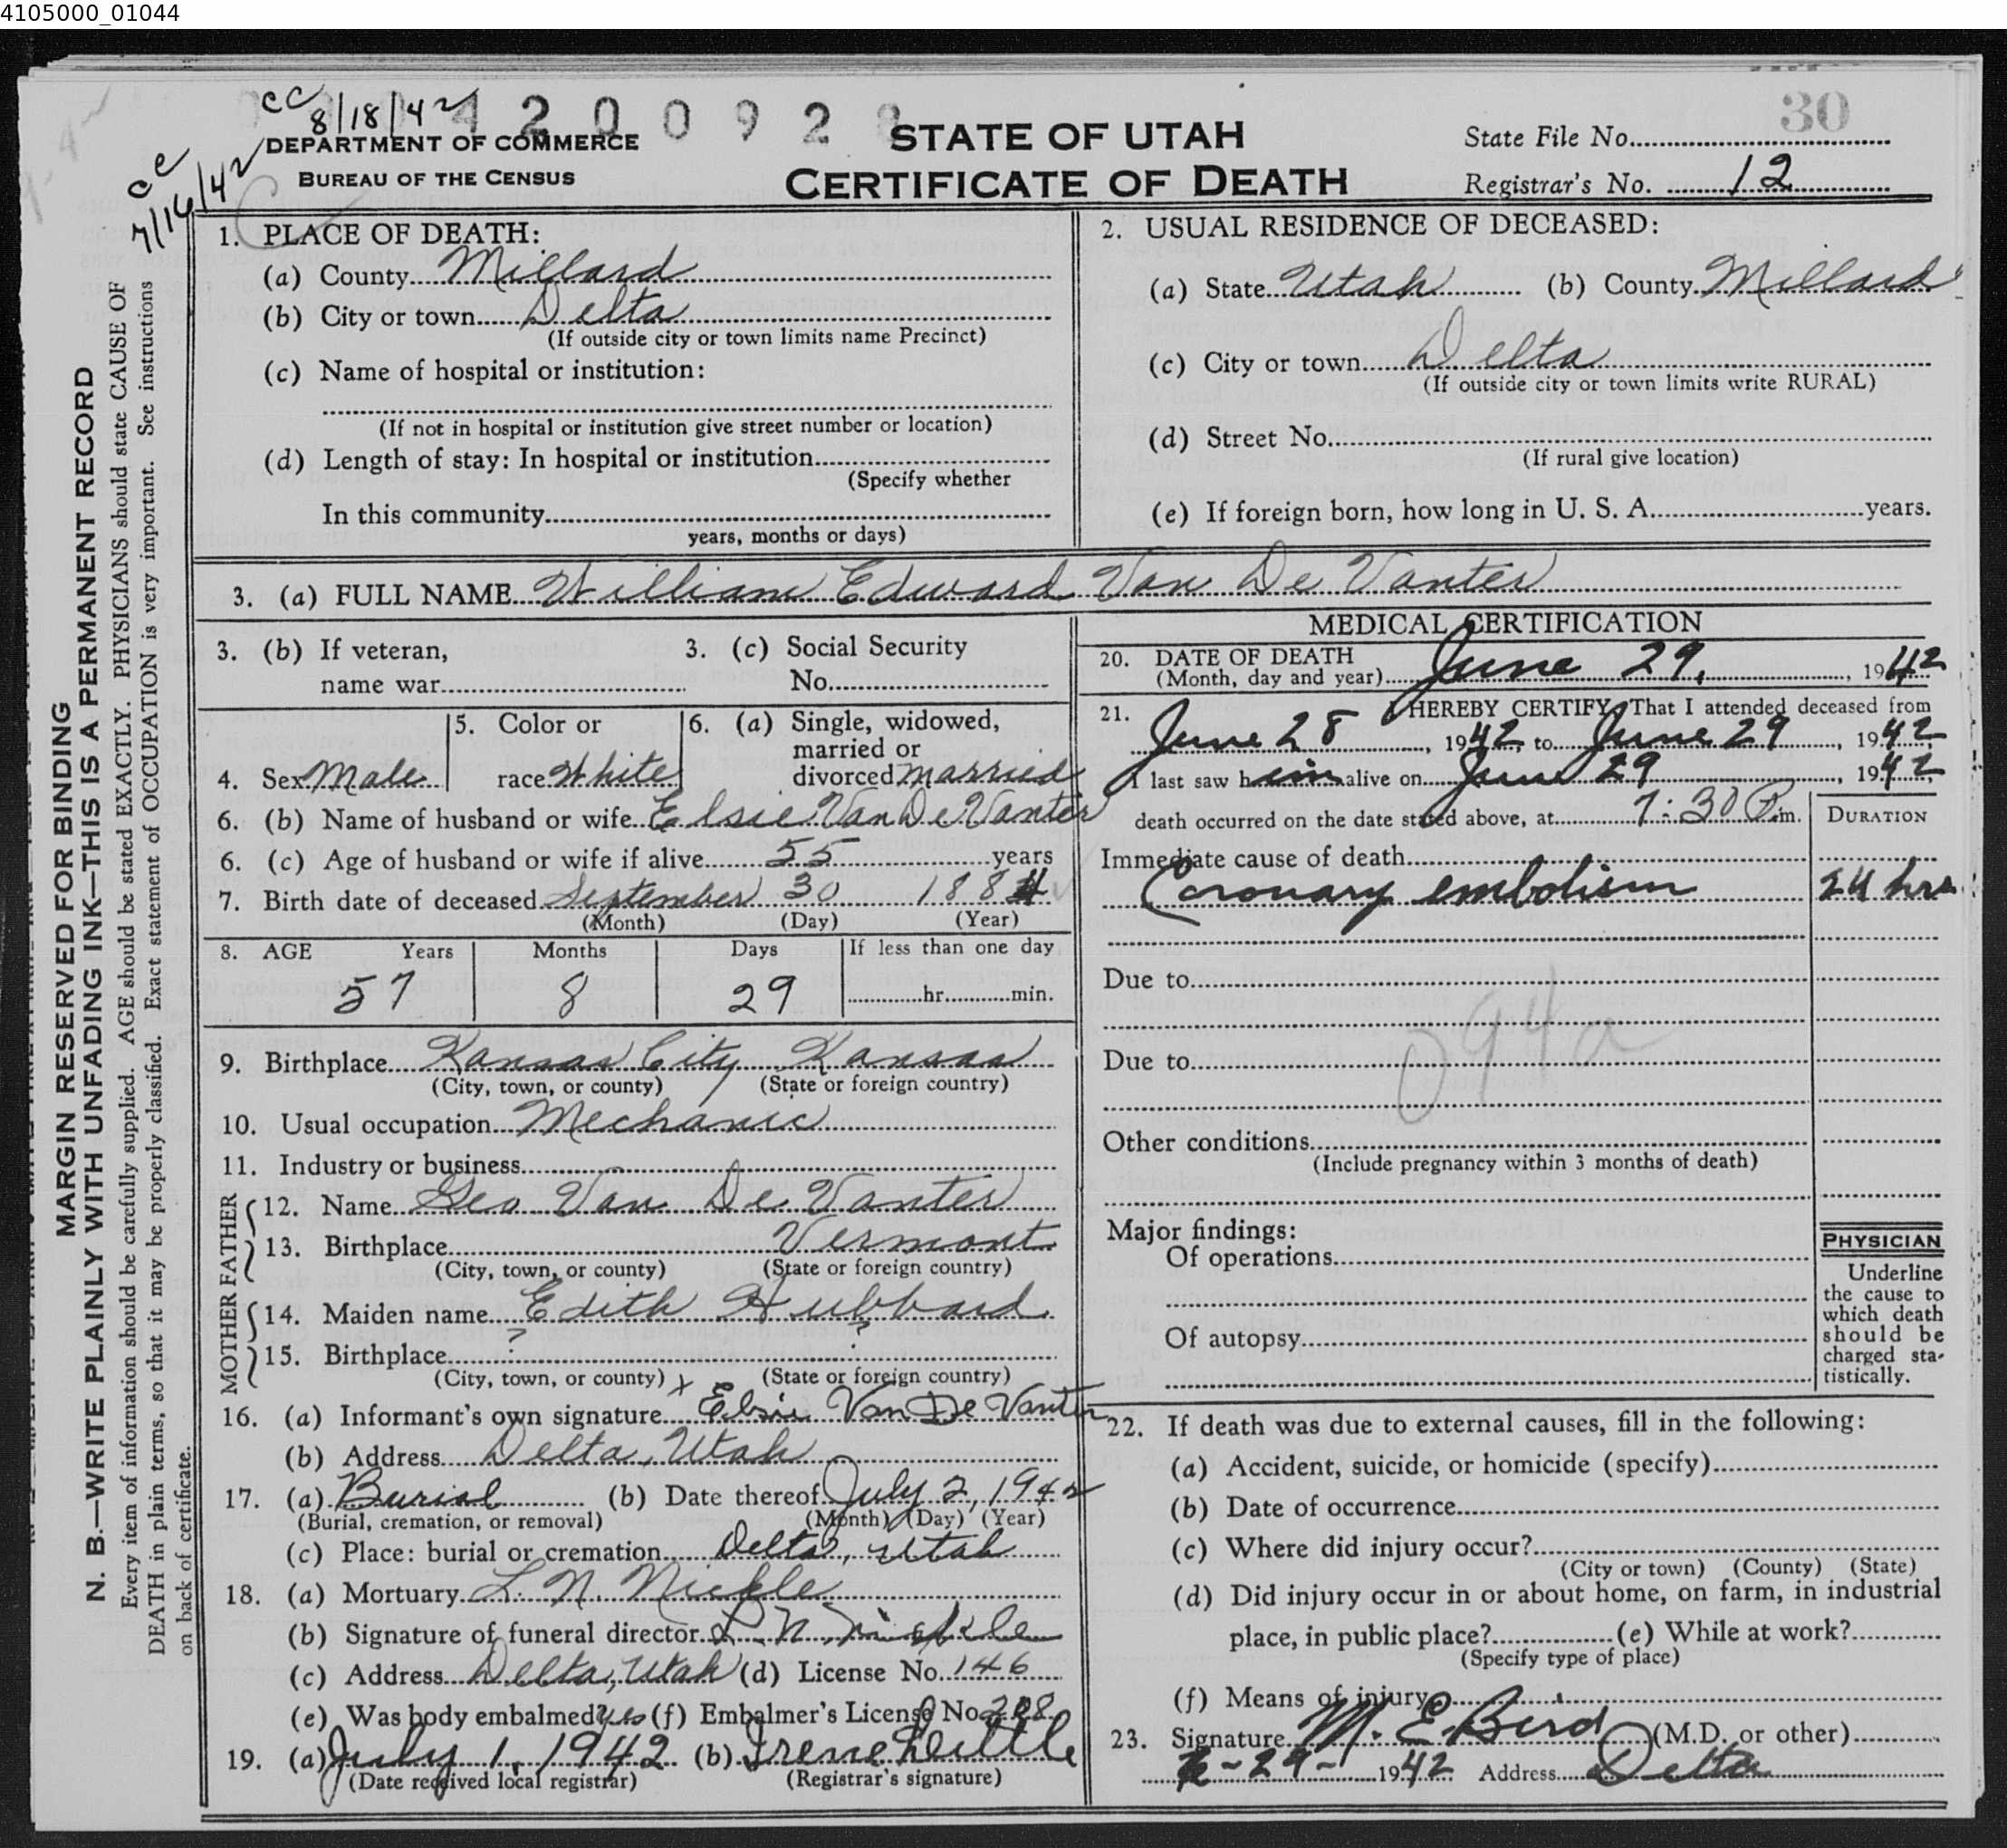 4105000_01044
cc 8/18/42
4 2 0 0 9 2
30
cc 7/16/42
DEPARTMENT OF COMMERCE
BUREAU OF THE CENSUS
STATE OF UTAH
CERTIFICATE OF DEATH
State File No.
Registrar's No. 12
MARGIN RESERVED FOR BINDING
N. B.—WRITE PLAINLY WITH UNFADING INK—THIS IS A PERMANENT RECORD
Every item of information should be carefully supplied. AGE should be stated EXACTLY. PHYSICIANS should state CAUSE OF
DEATH in plain terms, so that it may be properly classified. Exact statement of OCCUPATION is very important. See instructions
on back of certificate.
1. PLACE OF DEATH:
(a) County Millard
(b) City or town Delta
(If outside city or town limits name Precinct)
(c) Name of hospital or institution:
(If not in hospital or institution give street number or location)
(d) Length of stay: In hospital or institution
(Specify whether
In this community
years, months or days)
2. USUAL RESIDENCE OF DECEASED:
(a) State Utah (b) County Millard
(c) City or town Delta
(If outside city or town limits write RURAL)
(d) Street No.
(If rural give location)
(e) If foreign born, how long in U. S. A. years.
3. (a) FULL NAME William Edward Van De Vanter
3. (b) If veteran,
name war
3. (c) Social Security
No.
4. Sex Male
5. Color or
race White
6. (a) Single, widowed,
married or
divorced married
6. (b) Name of husband or wife Elsie Van De Vanter
6. (c) Age of husband or wife if alive 55 years
7. Birth date of deceased September 30 1884
(Month) (Day) (Year)
8. AGE Years Months Days If less than one day
57 8 29 hr. min.
9. Birthplace Kansas City Kansas
(City, town, or county) (State or foreign country)
10. Usual occupation Mechanic
11. Industry or business
FATHER
12. Name Geo Van De Vanter
13. Birthplace Vermont
(City, town, or county) (State or foreign country)
MOTHER
14. Maiden name Edith Hubbard
15. Birthplace ? ?
(City, town, or county) (State or foreign country)
16. (a) Informant's own signature x Elsie Van De Vanter
(b) Address Delta, Utah
17. (a) Burial (b) Date thereof July 2, 1942
(Burial, cremation, or removal) (Month) (Day) (Year)
(c) Place: burial or cremation Delta, Utah
18. (a) Mortuary L. N. Nickle
(b) Signature of funeral director L. N. Nickle
(c) Address Delta, Utah (d) License No. 146
(e) Was body embalmed? yes (f) Embalmer's License No. 208
19. (a) July 1, 1942 (b) Irene Leittle
(Date received local registrar) (Registrar's signature)
MEDICAL CERTIFICATION
20. DATE OF DEATH
(Month, day and year) June 29, 1942
21. I HEREBY CERTIFY, That I attended deceased from
June 28, 1942, to June 29, 1942
I last saw him alive on June 29, 1942
death occurred on the date stated above, at 7:30 P.m.
DURATION
Immediate cause of death
Coronary embolism 24 hrs.
Due to
094a
Due to
Other conditions
(Include pregnancy within 3 months of death)
Major findings:
Of operations
Of autopsy
PHYSICIAN
Underline
the cause to
which death
should be
charged sta-
tistically.
22. If death was due to external causes, fill in the following:
(a) Accident, suicide, or homicide (specify)
(b) Date of occurrence
(c) Where did injury occur?
(City or town) (County) (State)
(d) Did injury occur in or about home, on farm, in industrial
place, in public place? (e) While at work?
(Specify type of place)
(f) Means of injury
23. Signature M. E. Bird (M.D. or other)
6-29-1942 Address Delta